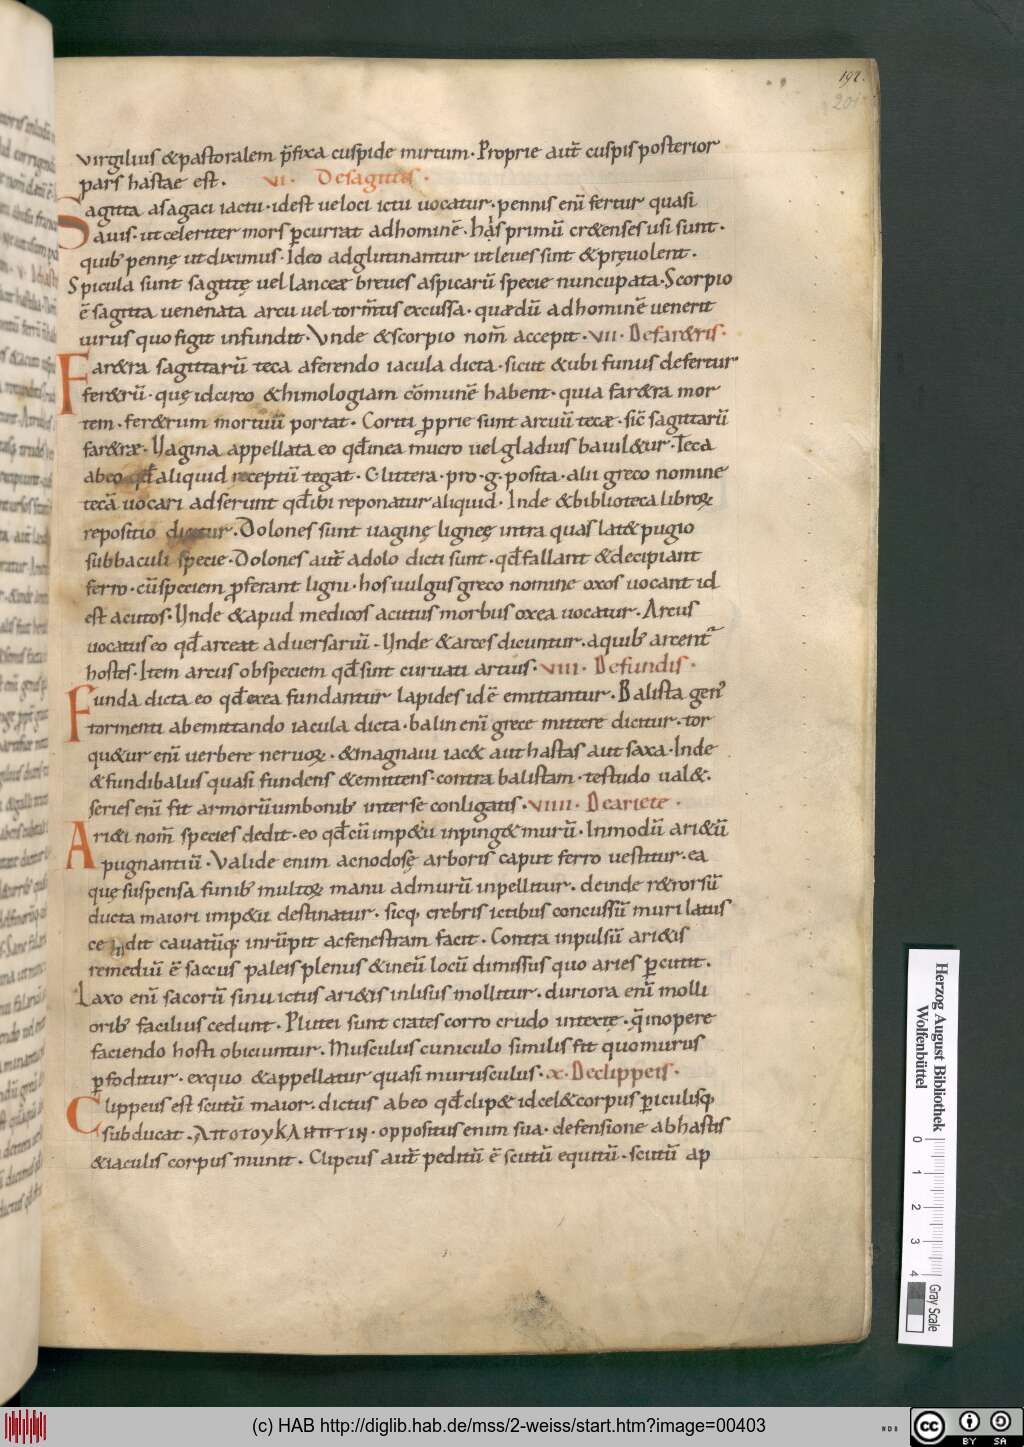 192.
201
virgilius & pastoralem p̄fixa cuspide mirtum · Proprie aut̄ cuspis posterior
pars hastae est . VI · De sagittis .
Sagitta a sagaci iactu · id est veloci ictu uocatur · pennis enī fertur quasi
auis · ut celeriter mors ꝑcurrat ad hominē · has primū cr&enses usi sunt ·
quib; pennę ut diximus · Ideo adglutinantur ut leues sint & pręuolent .
Spicula sunt sagittę uel lanceæ breues a spicarū specie nuncupata · Scorpio
ē sagitta uenenata arcu uel torm̄tis excussa · quæ dū ad hominē uenerit
uirus quo figit infundit · Vnde & scorpio nom̄ accepit · VII · De far&ris ·
Far&ra sagittarū teca a ferendo iacula dicta · sicut & ubi funus defertur
fer&rū · quę idcirco & himologiam cōmunē habent · quia far&ra mor
tem · fer&rum mortuū portat · Coriti ꝓprie sunt arcuū tecæ · sic̄ sagittarū
far&ræ · Vagina appellata eo qđ in ea mucro uel gladius baiul&ur · Teca
ab eo qđ aliquid receptū tegat · C littera · pro · g · posita · alii greco nomine
tecā uocari adserunt qđ ibi reponatur aliquid · Inde & biblioteca libroꝝ
repositio dicitur · Dolones sunt uaginę ligneę intra quas lat& pugio
sub baculi specie · Dolones aut̄ a dolo dicti sunt · qđ fallant & decipiant
ferro · cū speciem ꝓferant ligni · hos uulgus greco nomine oxos uocant id
est acutos · Vnde & apud medicos acutus morbus oxea uocatur · Arcus
uocatus eo qđ arceat aduersariū · Vnde & arces dicuntur · a quib; arcent̄
hostes · Item arcus ob speciem qđ sint curuati artius · VIII · De fundis ·
Funda dicta eo qđ ex ea fundantur lapides id ē emittantur · Balista gen
tormenti ab emittando iacula dicta · balin enī grece mittere dicitur · tor
qu&ur enī uerbere neruoꝝ · & magna ui iac& aut hastas aut saxa · Inde
& fundibalus quasi fundens & emittens · contra balistam · testudo ual& .
series enī fit armorū umbonib; inter se conligatis · VIIII · De ariete ·
Ari&i nom̄ species dedit · eo qđ cū imp&u inping& murū · In modū ari&ū
pugnantiū · Valide enim ac nodosę arboris caput ferro uestitur · ea
quę suspensa funib; multoꝝ manu ad murū inpellitur · deinde r&rorsū
ducta maiori imp&u destinatur · sicq; crebris ictibus concussū muri latus
dit cauatūq; inrūpit ac fenestram facit · Contra inpulsū ari&is
remediū ē saccus paleis plenus & in eū locū dimissus quo aries ꝑcutit .
Laxo enī sacorū sinu ictus ari&is inlisus mollitur · duriora enī molli
orib; facilius cedunt · Plutei sunt crates corro crudo intextę · q̄ in opere
faciendo hosti obiciuntur · Musculus cuniculo similis fit quo murus
ꝑfoditur · ex quo & appellatur quasi murusculus · X · De clippeis ·
Clippeus est scutū maior · dictus ab eo qđ clip& id cel& corpus ꝑiculisq;
subducat · ΑΠΟΤΟΥΚΛΗΠΤΙΝ · oppositus enim sua · defensione ab hastis
& iaculis corpus munit · Clipeus aut̄ peditū ē scutū equitū · scutū ap
Herzog August Bibliothek
Wolfenbüttel
0 1 2 3 4
Gray Scale
(c) HAB http://diglib.hab.de/mss/2-weiss/start.htm?image=00403
cc BY SA